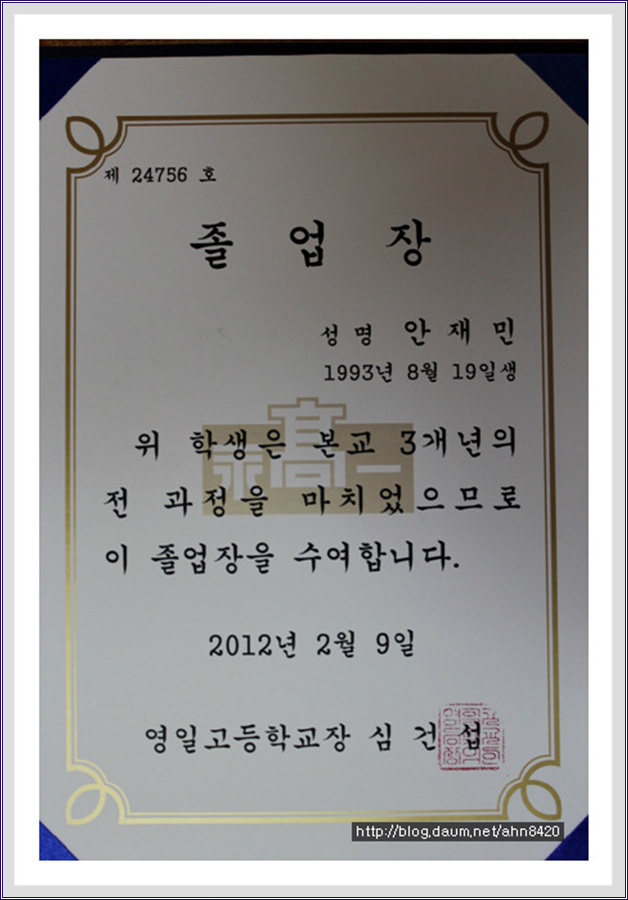 제 24756 호
졸 업 장
성 명 안 재 민
1993년 8월 19일생
위 학생은 본교 3개년의
전 과정을 마치었으므로
이 졸업장을 수여합니다.
2012년 2월 9일
영일고등학교장 심 건 섭
http://blog.daum.net/ahn8420